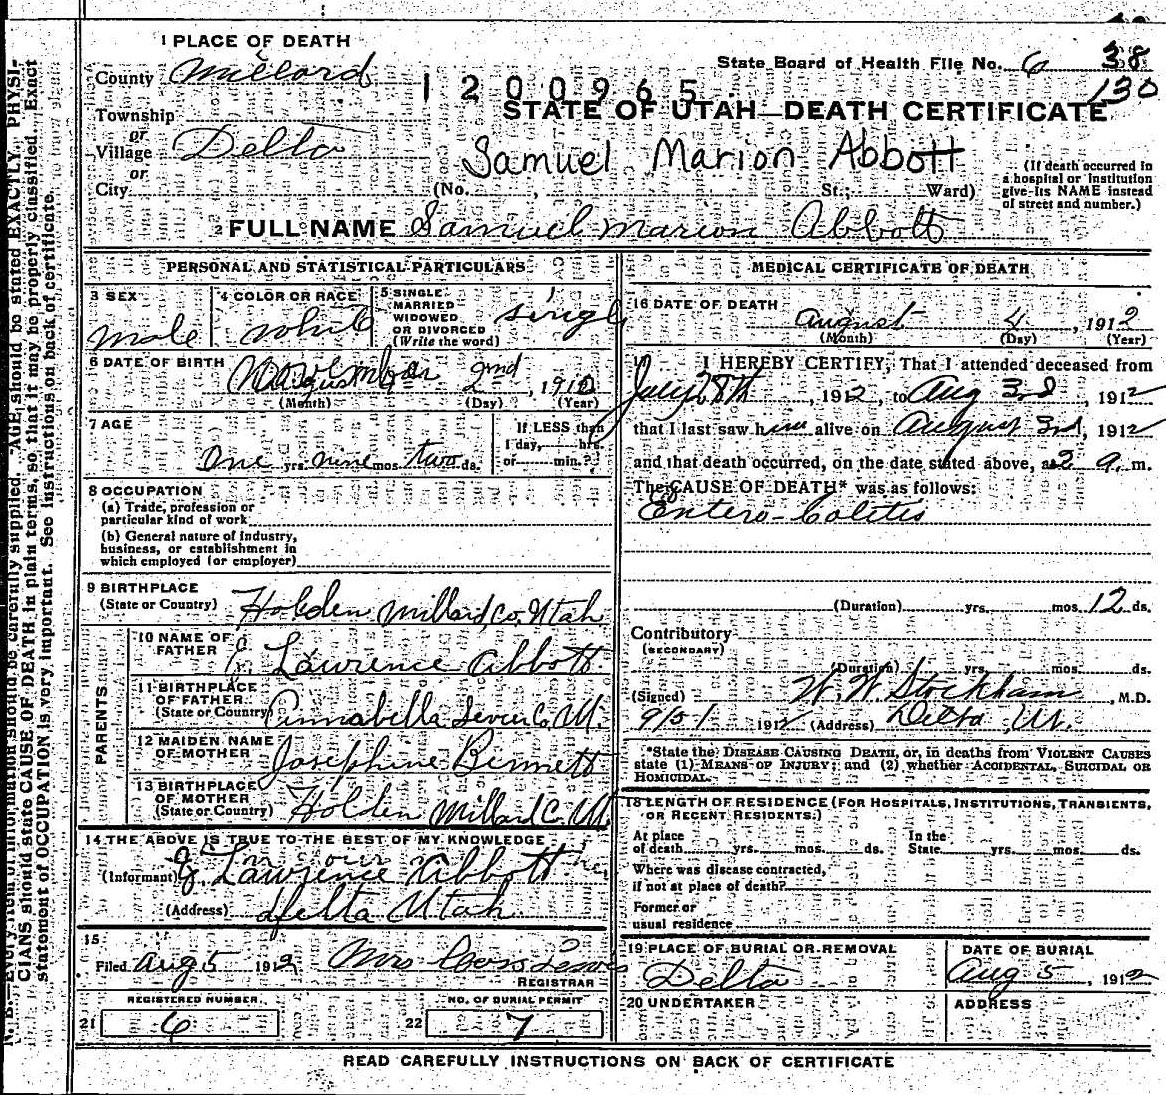 1 PLACE OF DEATH
County Millard
State Board of Health File No. 6 38
130
1200965
STATE OF UTAH—DEATH CERTIFICATE
Township
or
Village Delta
or
City
Samuel Marion Abbott
(No. , St.; Ward)
(If death occurred in
a hospital or institution
give its NAME instead
of street and number.)
2 FULL NAME Samuel Marion Abbott
PERSONAL AND STATISTICAL PARTICULARS
3 SEX
male
4 COLOR OR RACE
white
5 SINGLE
MARRIED
WIDOWED
OR DIVORCED
(Write the word)
single
6 DATE OF BIRTH November 2nd, 1910
(Month) (Day) (Year)
7 AGE
One yrs. nine mos. two ds.
If LESS than
1 day, hrs.
or min.?
8 OCCUPATION
(a) Trade, profession or
particular kind of work
(b) General nature of industry,
business, or establishment in
which employed (or employer)
9 BIRTHPLACE
(State or Country) Holden Millard Co, Utah
PARENTS
10 NAME OF
FATHER Lawrence Abbott
11 BIRTHPLACE
OF FATHER
(State or Country) Annabella Sevier Co, Ut.
12 MAIDEN NAME
OF MOTHER Josephine Bennett
13 BIRTHPLACE
OF MOTHER
(State or Country) Holden Millard Co. Ut.
14 THE ABOVE IS TRUE TO THE BEST OF MY KNOWLEDGE
(Informant) Lawrence Abbott
(Address) Delta Utah
15
Filed Aug 5 1912 Mrs
REGISTRAR
REGISTERED NUMBER
21 6
NO. OF BURIAL PERMIT
22 7
MEDICAL CERTIFICATE OF DEATH
16 DATE OF DEATH
August 4, 1912
(Month) (Day) (Year)
I HEREBY CERTIFY, That I attended deceased from
July 28th, 1912, to Aug 3rd, 1912
that I last saw him alive on August 3rd, 1912
and that death occurred, on the date stated above, at 2 a. m.
The CAUSE OF DEATH* was as follows:
Entero-Colitis
(Duration) yrs. mos. 12 ds.
Contributory
(SECONDARY)
(Duration) yrs. mos. ds.
(Signed) W. W. Stockham, M.D.
9/5 1912 (Address) Delta, Ut.
*State the DISEASE CAUSING DEATH, or, in deaths from VIOLENT CAUSES
state (1) MEANS OF INJURY; and (2) whether ACCIDENTAL, SUICIDAL OR
HOMICIDAL.
18 LENGTH OF RESIDENCE (FOR HOSPITALS, INSTITUTIONS, TRANSIENTS,
OR RECENT RESIDENTS.)
At place
of death yrs. mos. ds.
In the
State yrs. mos. ds.
Where was disease contracted,
if not at place of death?
Former or
usual residence
19 PLACE OF BURIAL OR REMOVAL
Delta
DATE OF BURIAL
Aug 5, 1912
20 UNDERTAKER
ADDRESS
READ CAREFULLY INSTRUCTIONS ON BACK OF CERTIFICATE
N. B.—Every item of information should be carefully supplied. AGE should be stated EXACTLY. PHYSI-
CIANS should state CAUSE OF DEATH in plain terms, so that it may be properly classified. Exact
statement of OCCUPATION is very important. See instructions on back of certificate.